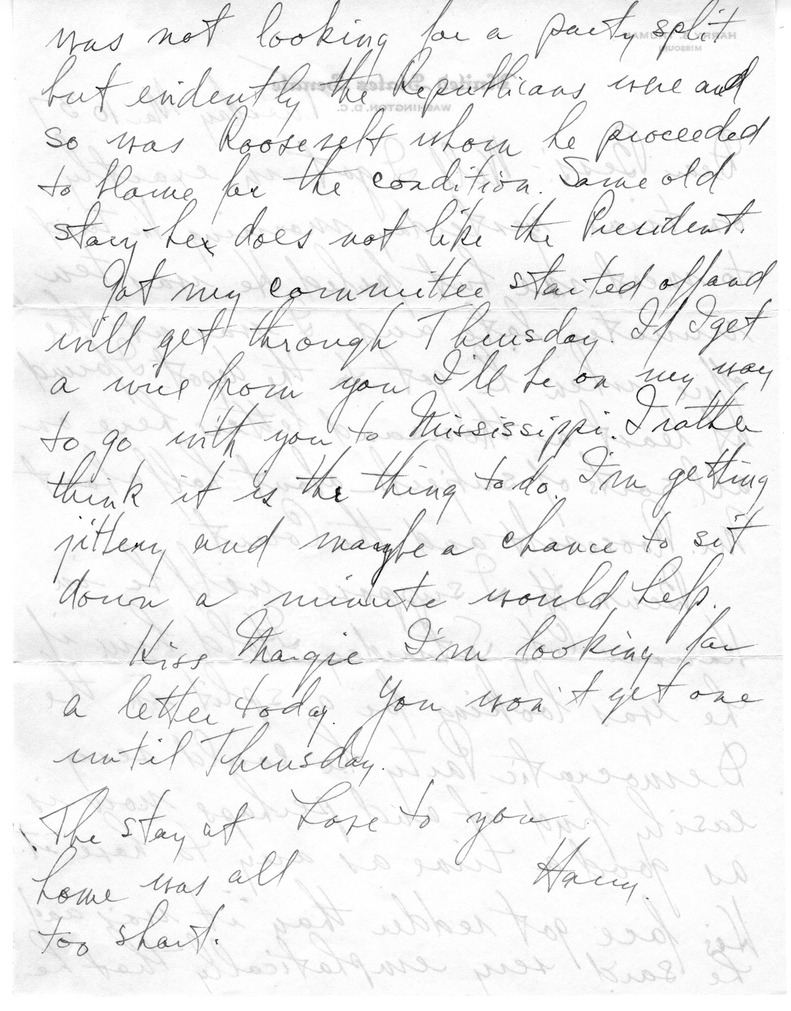 was not looking for a party split
but evidently the Republicans were and
so was Roosevelt whom he proceeded
to blame for the condition. Same old
story he does not like the President.
Got my committee started off and
will get through Thursday. If I get
a wire from you I'll be on my way
to go with you to Mississippi. I rather
think it is the thing to do. I'm getting
jittery and maybe a chance to sit
down a minute would help.
Kiss Margie I'm looking for
a letter today. You won't get one
until Thursday.
Love to you
Harry.
The stay at
home was all
too short.